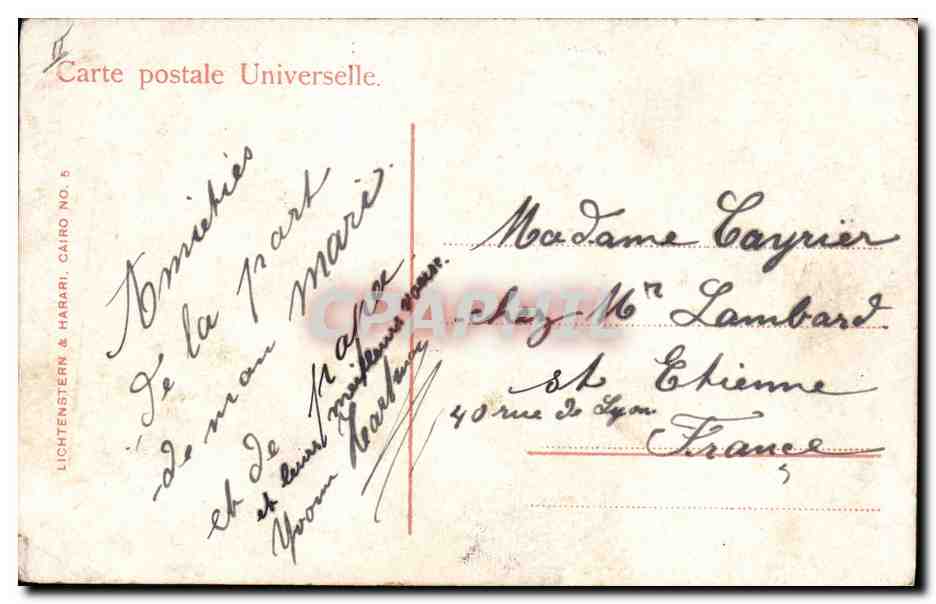 II
Carte postale Universelle.
LICHTENSTERN & HARARI, CAIRO NO. 5
Amitiés
de la part
de mon mari.
et de papa
et leurs meilleurs
Yvonne
Madame Cayrier
chez Mr Lambard.
st Etienne
40 rue de Lyon.
France
CPAPHIL